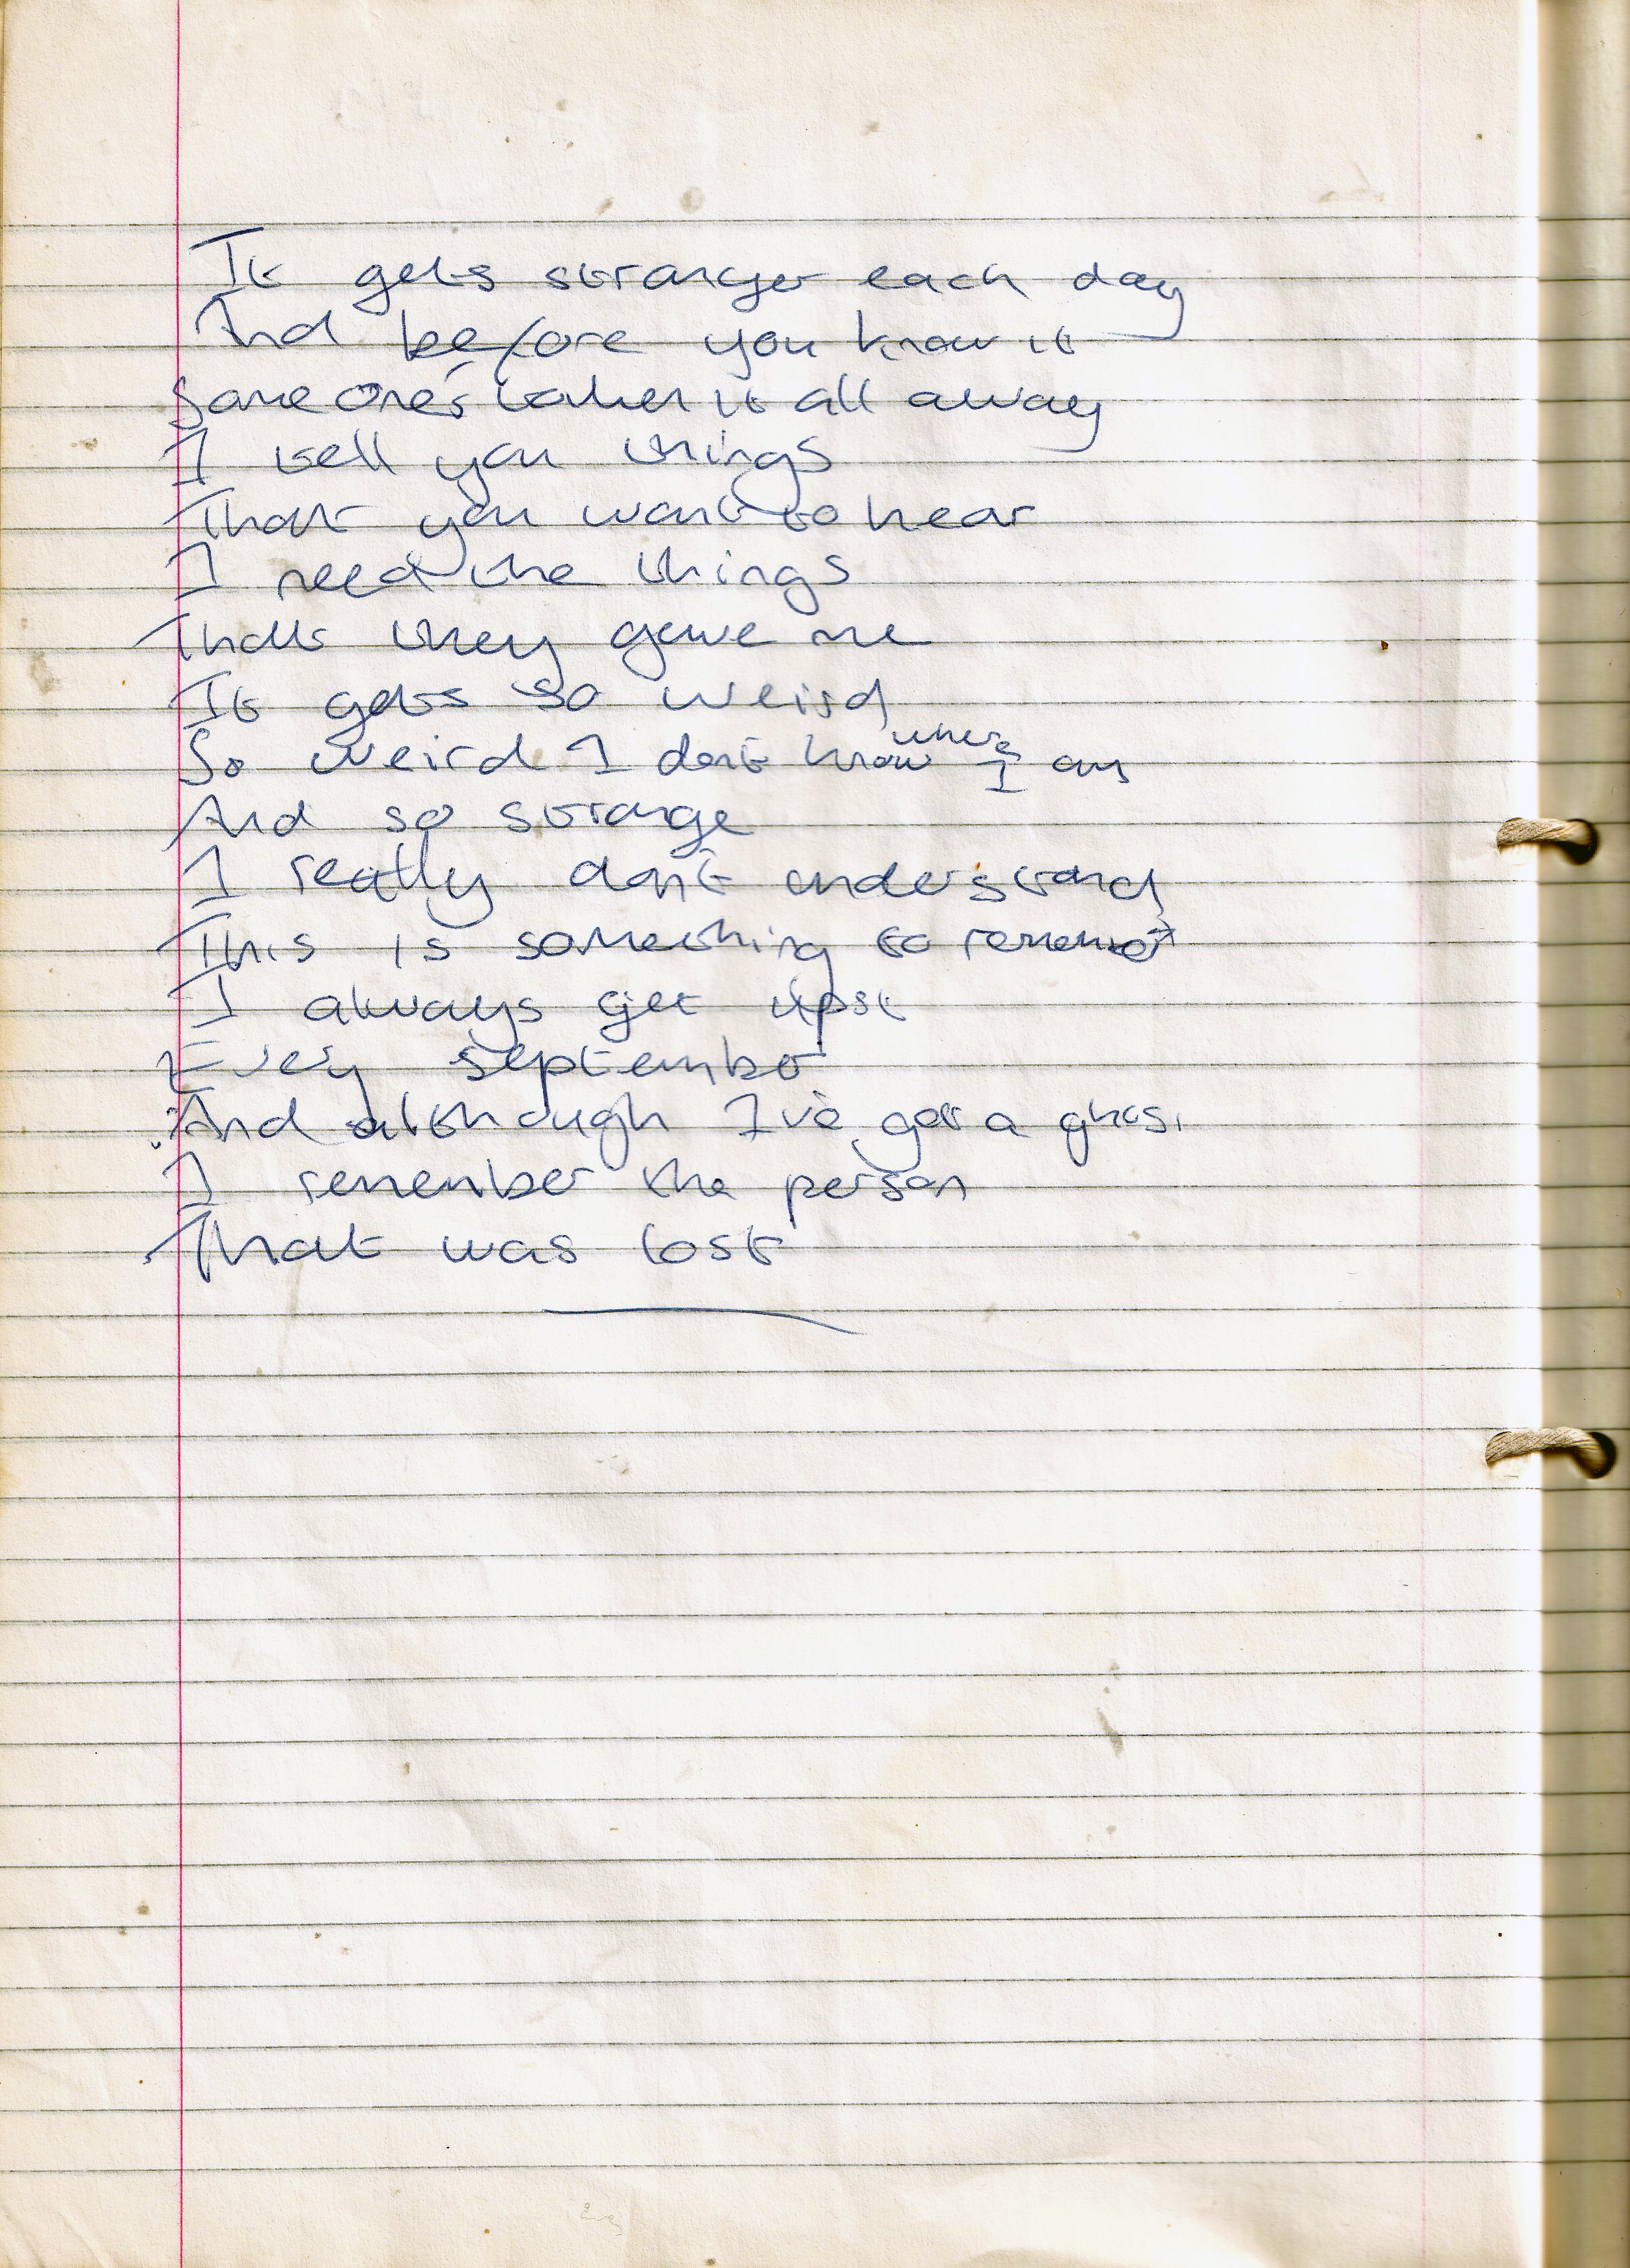 It gets stranger each day
And before you know it
Someone's taken it all away
I tell you things
That you want to hear
I need the things
That they gave me
It gets so weird
So weird I don't know where I am
And so strange
I really don't understand
This is something to
I always get
Every september
And although I've got a ghost
I remember the person
That was lost